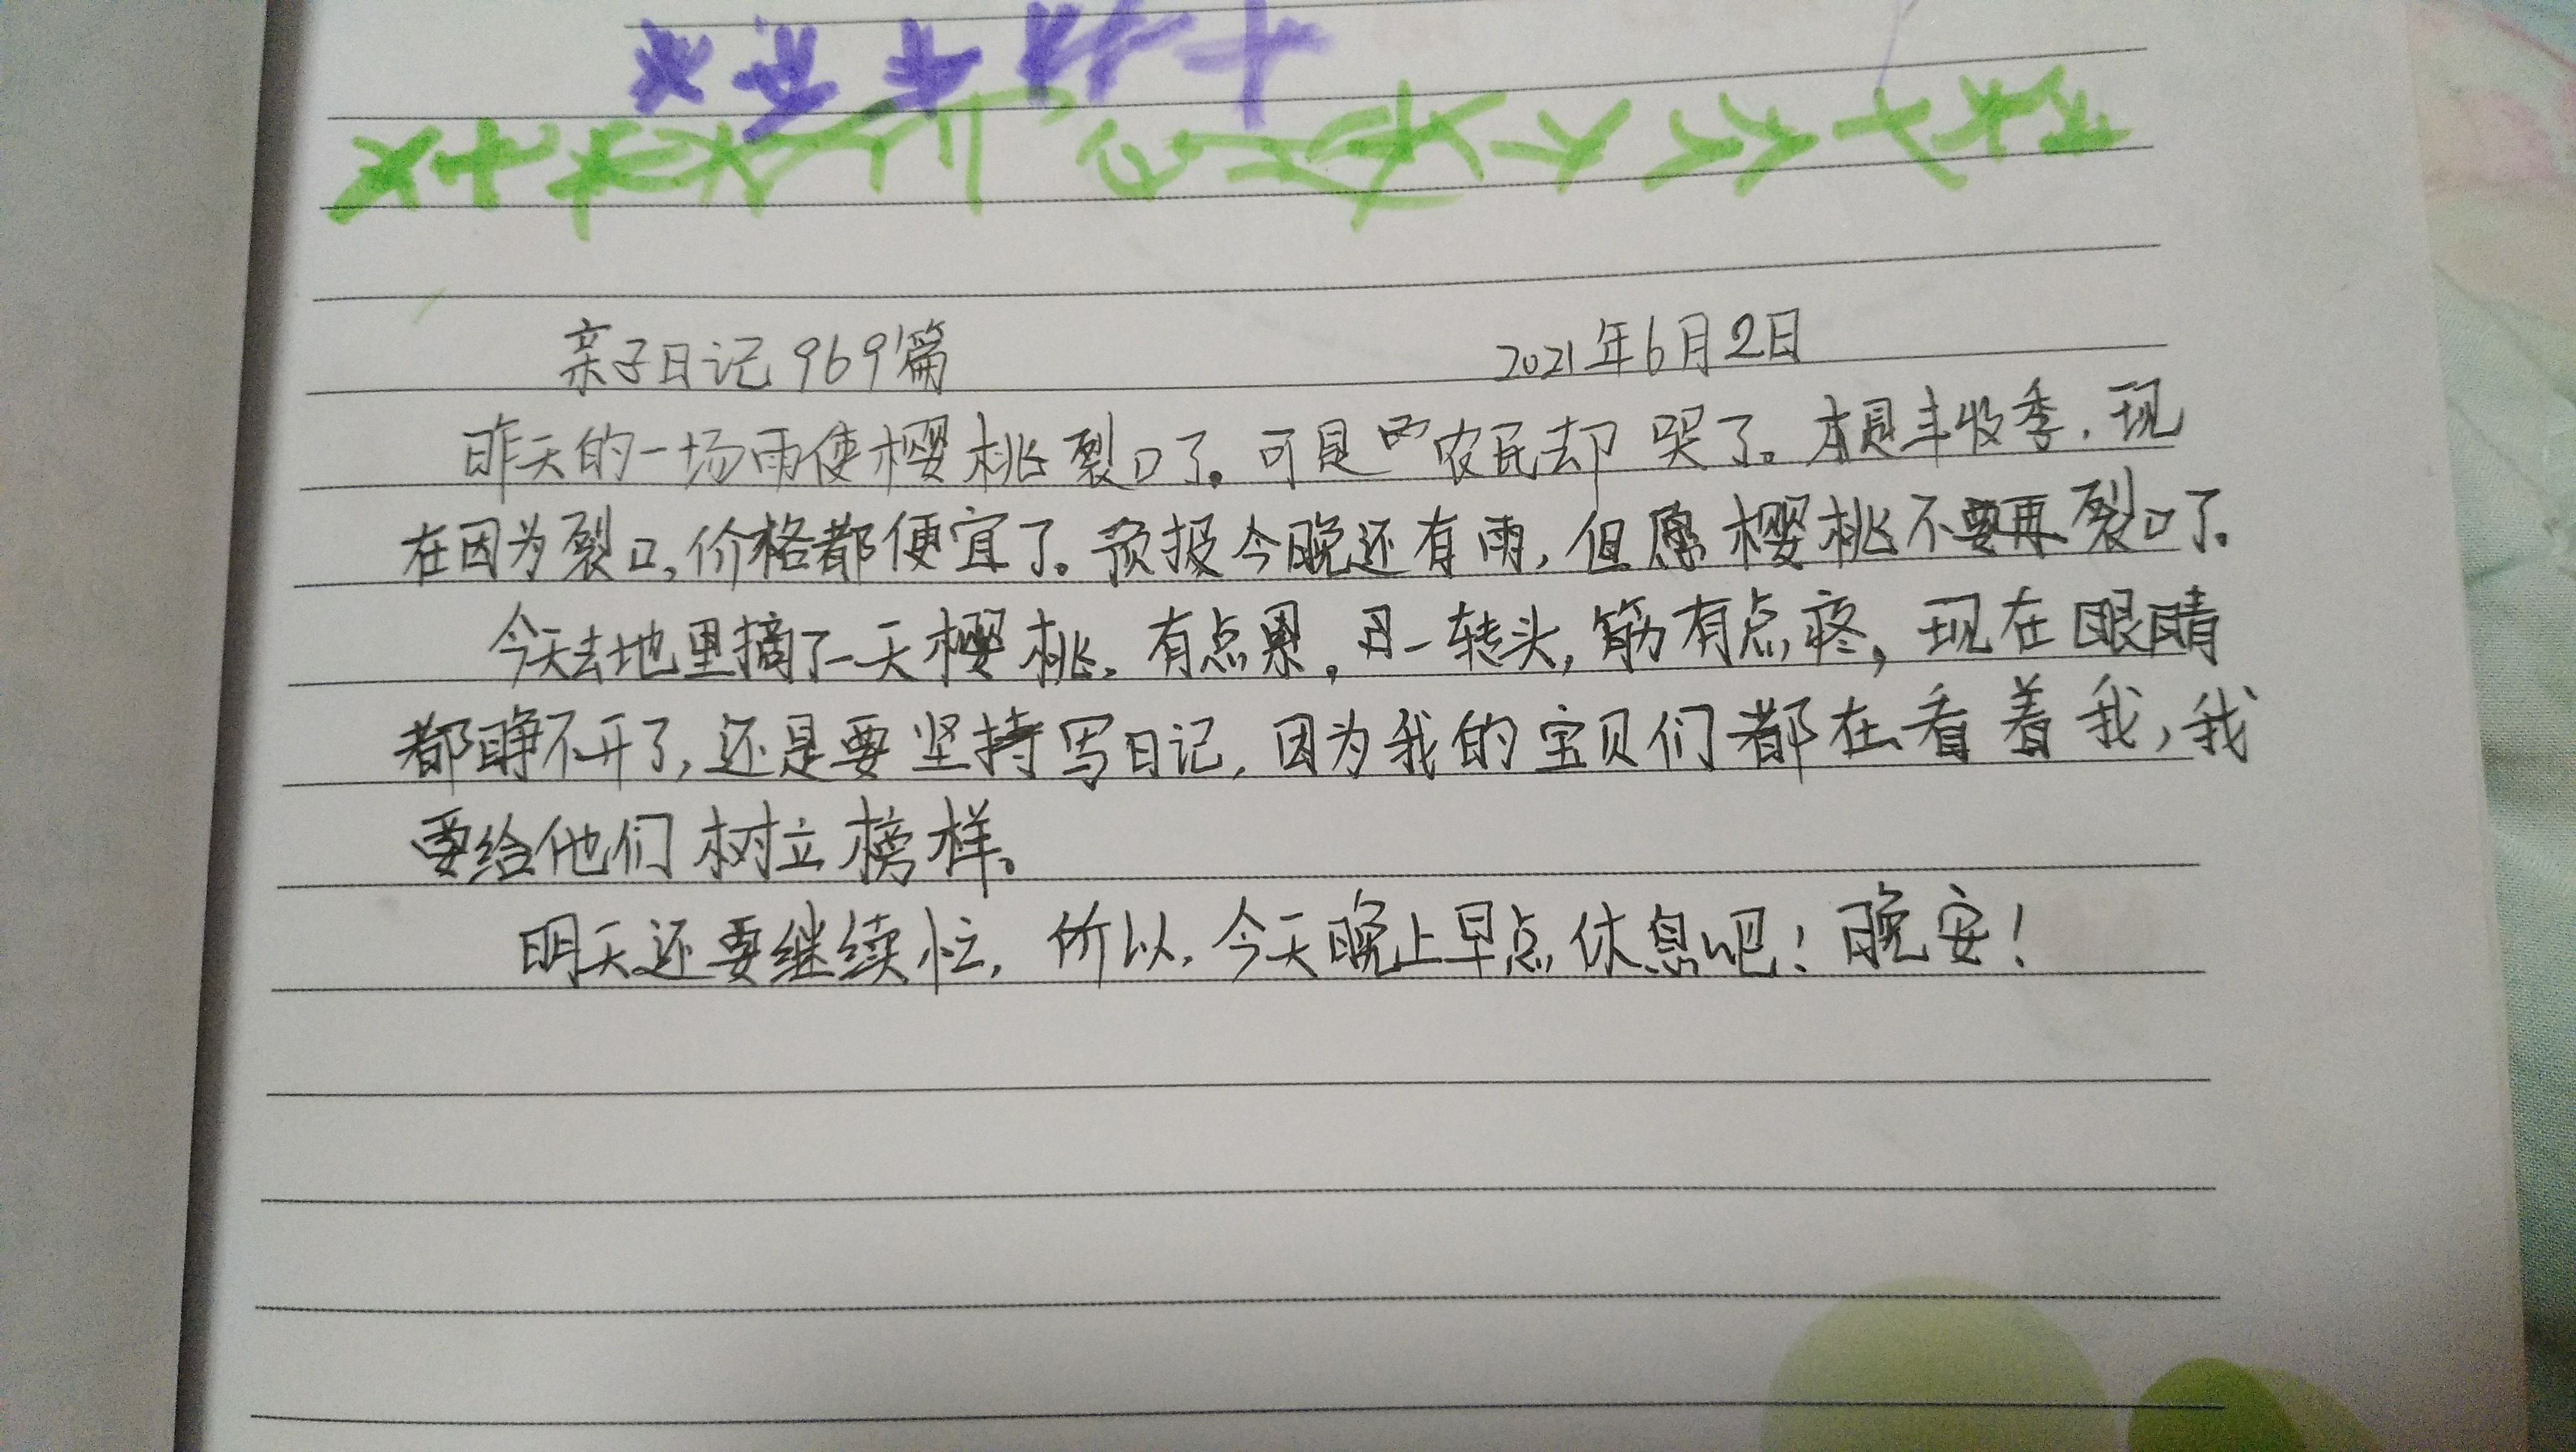 亲子日记969篇 2021年6月2日
昨天的一场雨使樱桃裂口了。可是农民却哭了。本是丰收季,现
在因为裂口,价格都便宜了。预报今晚还有雨,但愿樱桃不要再裂口了。
今天去地里摘了一天樱桃,有点累,一转头,筋有点疼,现在眼睛
都睁不开了,还是要坚持写日记,因为我的宝贝们都在看着我,我
要给他们树立榜样。
明天还要继续忙,所以,今天晚上早点休息吧!晚安!